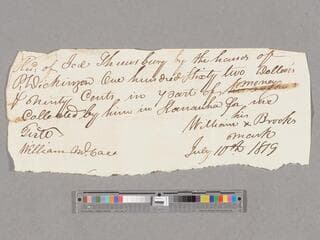 Recd of Joel Shrewsbury by the hands of
P. Dickinson One hundred Sixty two Dollars
& Ninety Cents, in part of money
Collected by him in Kanawha for me
his
William x Brooks
mark
Teste
William McCaaa
July 10th 1819